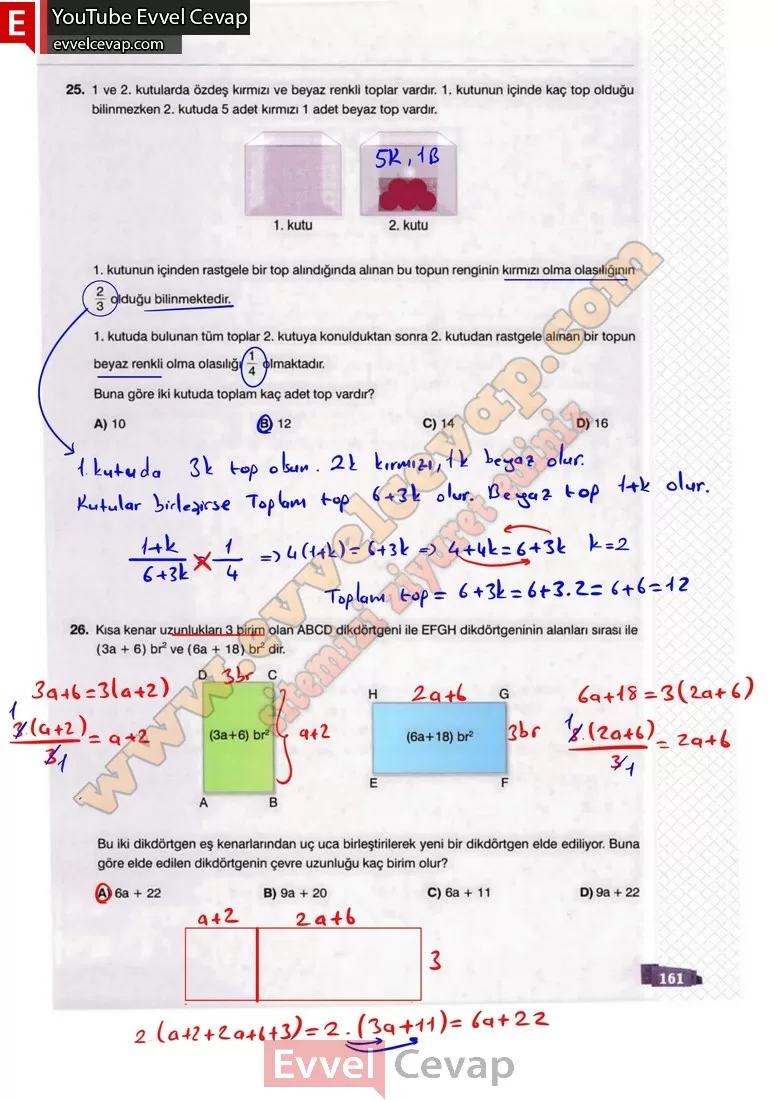 E YouTube Evvel Cevap
evvelcevap.com
25. 1 ve 2. kutularda özdeş kırmızı ve beyaz renkli toplar vardır. 1. kutunun içinde kaç top olduğu
bilinmezken 2. kutuda 5 adet kırmızı 1 adet beyaz top vardır.
5K, 1B
1. kutu 2. kutu
1. kutunun içinden rastgele bir top alındığında alınan bu topun renginin kırmızı olma olasılığının
2/3 olduğu bilinmektedir.
1. kutuda bulunan tüm toplar 2. kutuya konulduktan sonra 2. kutudan rastgele alınan bir topun
beyaz renkli olma olasılığı 1/4 olmaktadır.
Buna göre iki kutuda toplam kaç adet top vardır?
A) 10 B) 12 C) 14 D) 16
1. kutuda 3k top olsun. 2k kırmızı, 1k beyaz olur.
Kutular birleşirse Toplam top 6+3k olur. Beyaz top 1+k olur.
(1+k)/(6+3k) = 1/4 => 4(1+k) = 6+3k => 4+4k = 6+3k k=2
Toplam top = 6+3k = 6+3.2 = 6+6 = 12
26. Kısa kenar uzunlukları 3 birim olan ABCD dikdörtgeni ile EFGH dikdörtgeninin alanları sırası ile
(3a + 6) br² ve (6a + 18) br² dir.
D 3br C
3a+6=3(a+2)
1
3.(a+2)/3 1 = a+2
(3a+6) br²
a+2
A B
H 2a+6 G
(6a+18) br²
3br
E F
6a+18=3(2a+6)
1
3.(2a+6)/3 1 = 2a+6
Bu iki dikdörtgen eş kenarlarından uç uca birleştirilerek yeni bir dikdörtgen elde ediliyor. Buna
göre elde edilen dikdörtgenin çevre uzunluğu kaç birim olur?
A) 6a + 22 B) 9a + 20 C) 6a + 11 D) 9a + 22
a+2 2a+6
3
161
2.(a+2+2a+6+3) = 2.(3a+11) = 6a+22
Evvel Cevap
www.evvelcevap.com
sitemizi ziyaret ediniz